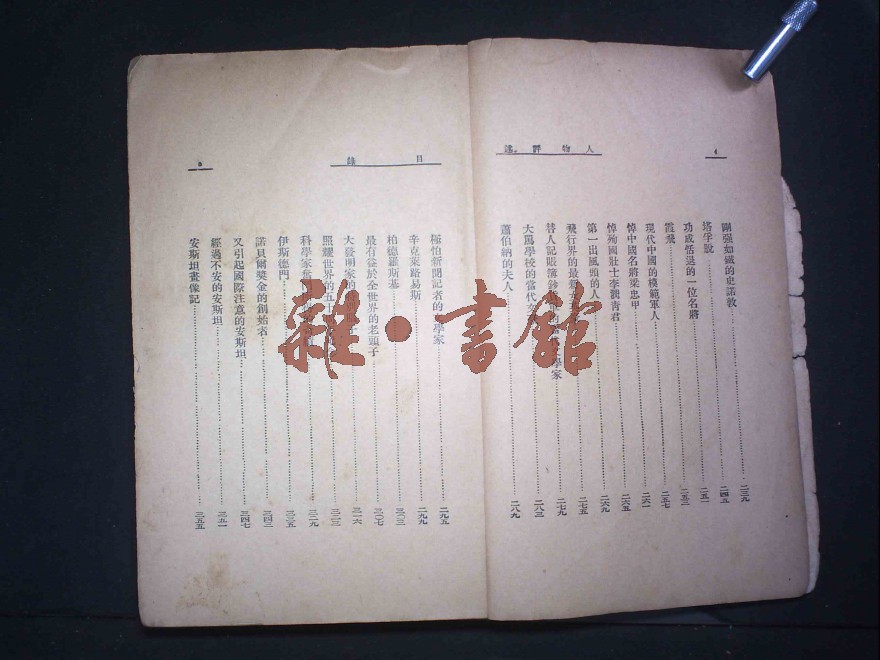 人物評述
4
剛强如鐵的史諾敦……二三九
塔孚脫……二四五
功成恬退的一位名將……二五一
霞飛……二五三
現代中國的模範軍人……二五七
悼中國名將梁忠甲……二六一
悼殉國壯士李潤青君……二六五
第一出風頭的人……二六九
飛行界的最
替人記賬簿鈔 學家
大罵學校的當代文……二八三
蕭伯納的夫人……二八九
目錄
5
極怕新聞記者的 學家……二九五
辛克萊路易斯……二九九
柏德羅斯基……三〇三
最有益於全世界的老頭子……三〇七
大發明家的 子……三一六
照耀世界的五十
科學家
伊斯德門……三三五
諾貝爾獎金的創始者……三四三
又引起國際注意的安斯坦……三四七
經過不安的安斯坦……三五一
安斯坦畫像記……三五五
雜·書館